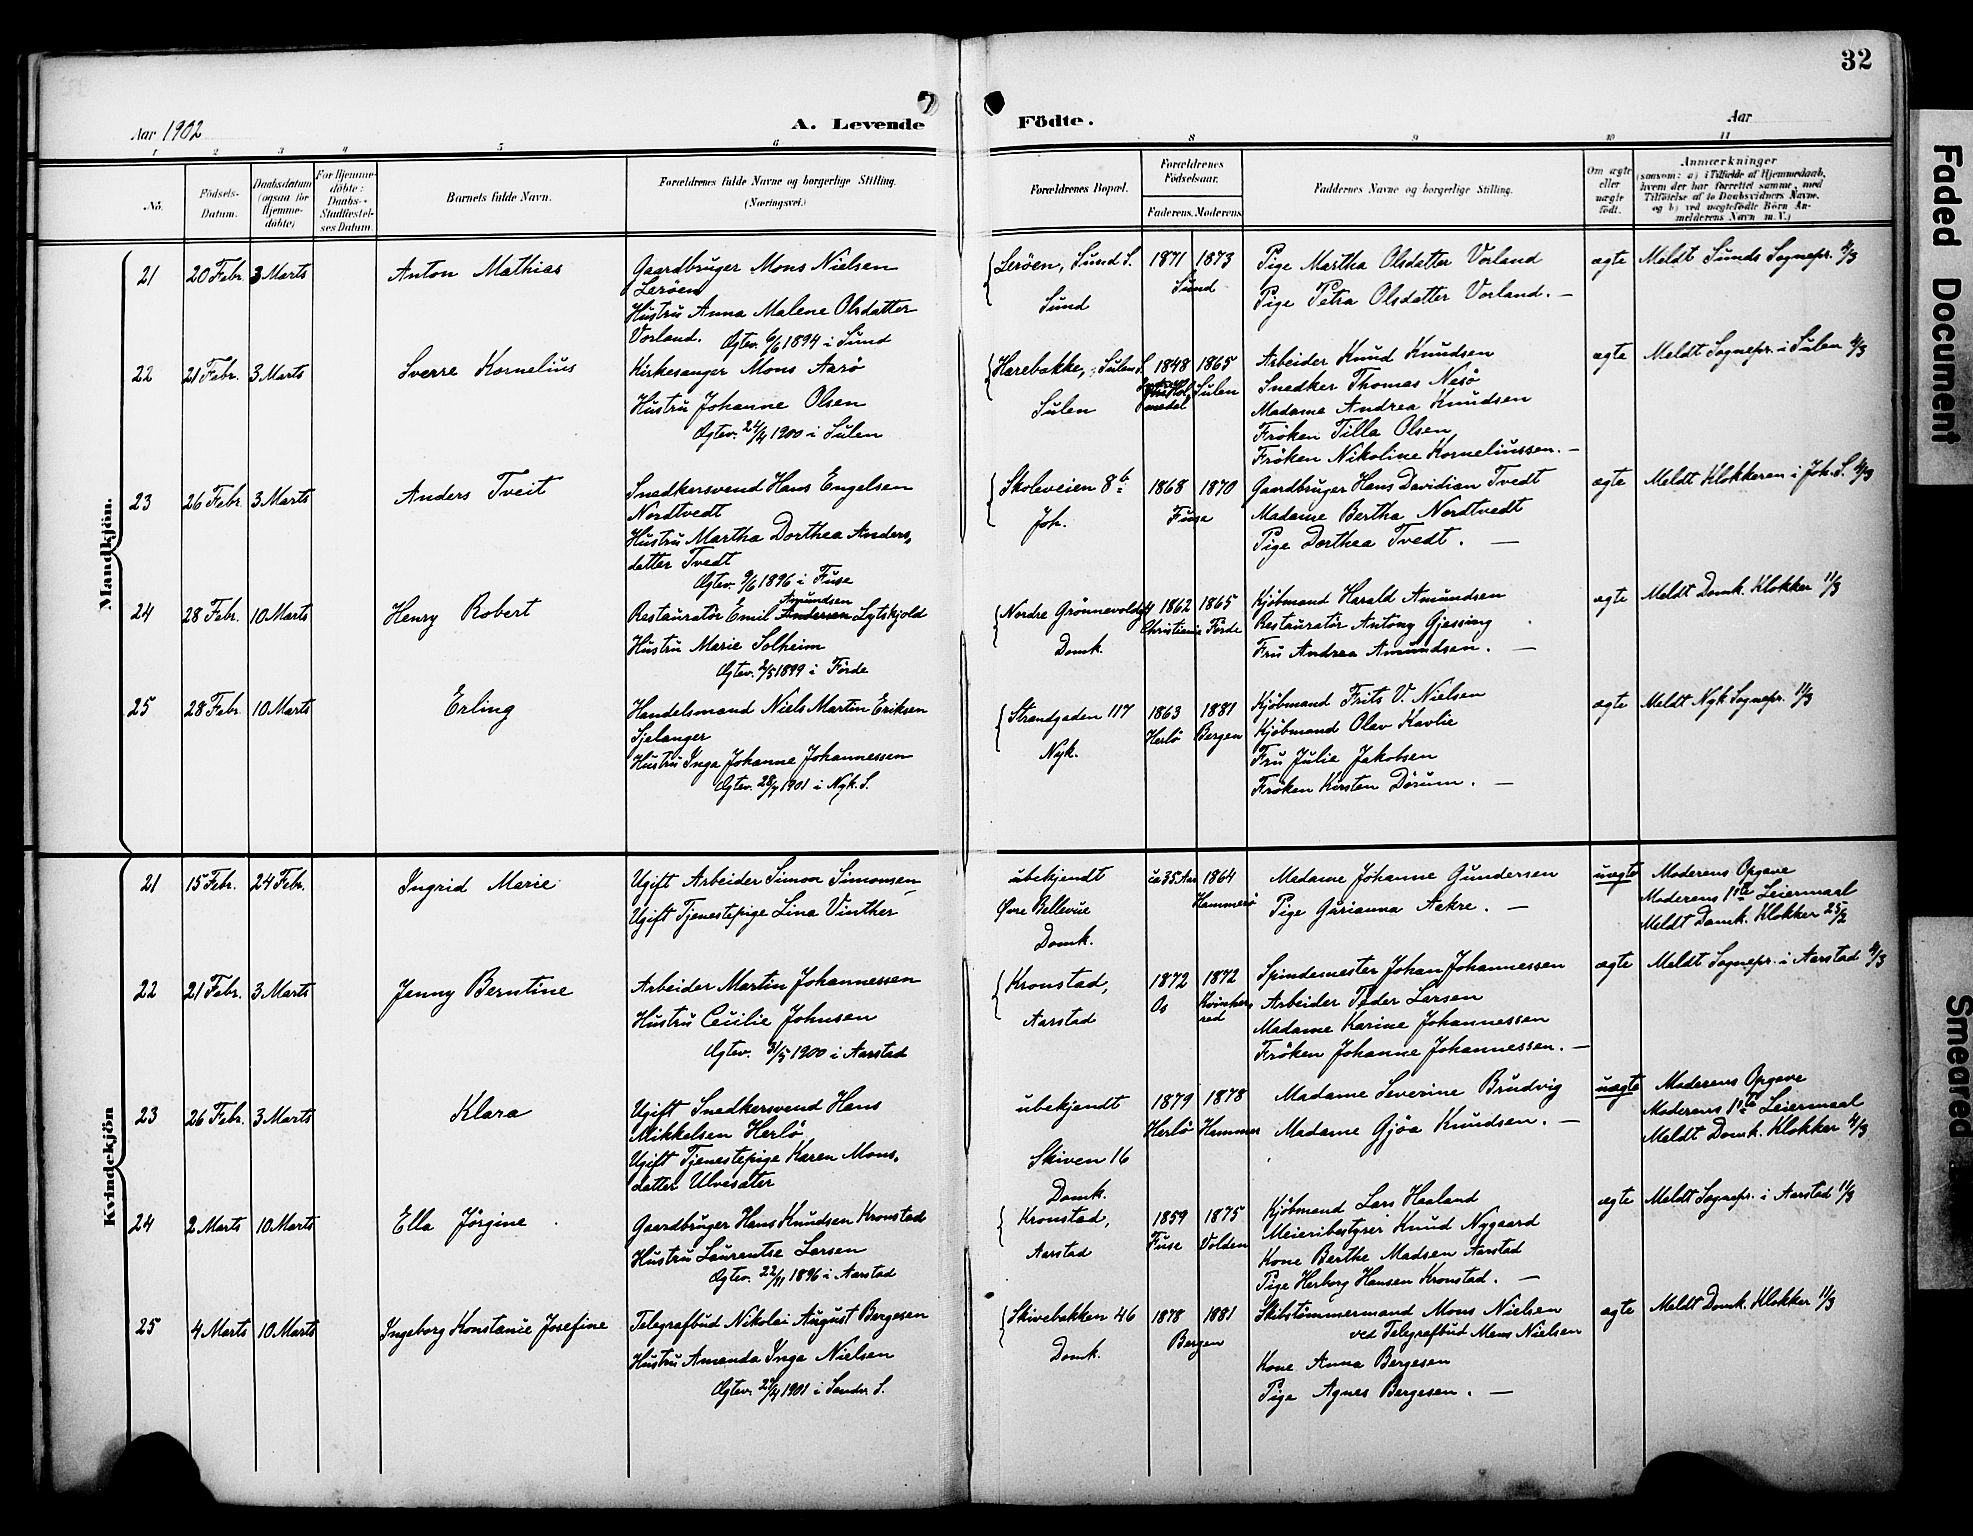 32
Aar 1902
A. Levende Födte.
Aar
1 2 3 4 5 6 8 9 10 11
No.
Födsels-Datum.
Daabsdatum (ogsaa for Hjemmedöbte)
For Hjemmedöbte: Daabs-Stadfæstelses Datum.
Barnets fulde Navn.
Forældrenes fulde Navne og borgerlige Stilling. (Næringsvei.)
Forældrenes Bopæl.
Forældrenes Födselsaar.
Faderens. Moderens.
Faddernes Navne og borgerlige Stilling.
Om ægte eller uægte födt.
Anmærkninger
(saasom: a) i Tilfælde af Hjemmedaab, hvem der har forrettet samme, med Tilföielse af to Daabsvidners Navne, og b) ved uægtefödte Börn Anmelderens Navn m. V.)
Mandkjön.
21 20 Febr. 3 Marts Anton Mathias
Gaardbruger Mons Nielsen
Leröen
Hustru Anna Malene Olsdatter
Vorland. Ogtev. 6/6 1894 i Sund
Leröen, Sund S.
Sund
1871 1873
Sund
Pige Martha Olsdatter Vorland
Pige Petra Olsdatter Vorland. —
ægte Meldt Sunds Sognepr. 4/3
22 21 Febr. 3 Marts Sverre Kornelius
Kirkesanger Mons Aarö
Hustru Johanne Olsen
Ogtev. 24/4 1900 i Sulen
Harebakke, Sulen S.
Sulen
1848 1865
Sulen
Arbeider Knud Knudsen
Snedker Thomas Nesö
Madame Andrea Knudsen
Fröken Tilla Olsen
Fröken Nikoline Korneliussen. —
ægte Meldt Sognepr. i Sulen 4/3
23 26 Febr. 3 Marts Anders Tveit
Snedkersvend Hans Engelsen
Nordtvedt
Hustru Martha Dorthea Anders,
datter Tvedt
Ogtev. 9/6 1896 i Fuse
Skoleveien 8b
Joh.
1868 1870
Fuse
Gaardbruger Hans Davidian Tvedt
Madame Bertha Nordtvedt
Pige Dorthea Tvedt. —
ægte Meldt Klokkeren i Joh. S. 4/3
24 28 Febr. 10 Marts Henry Robert
Amundsen
Restauratör Emil Andersen Lytskjold
Hustru Marie Solheim
Ogtev. 2/5 1899 i Förde
Nordre Grönnevoldsg
Domk.
1862 1865
Christiania Förde
Kjöbmand Harald Amundsen
Restauratör Antony Gjessing
Fru Andrea Amundsen. —
ægte Meldt Domk. Klokker 11/3
25 28 Febr. 10 Marts Erling
Handelsmand Niels Martin Eriksen
Sjelanger
Hustru Inga Johanne Johannessen
Ogtev. 28/7 1901 i Nyk. S.
Strandgaden 117
Nyk.
1863 1881
Herlö Bergen
Kjöbmand Frits V. Nielsen
Kjöbmand Olav Kavlie
Fru Julie Jakobsen
Fröken Kirsten Dörum. —
ægte Meldt Nyk Sognepr. 11/3
Kvindekjön
21 15 Febr. 24 Febr. Ingrid Marie
Ugift Arbeider Simon Simonsen
Ugift Tjenestepige Lina Vinther
ubekjendt
Øvre Bellevue
Domk.
ca 35 Aar 1864
Hammerö
Madame Johanne Gundersen
Pige Garianna Aakre. —
uægte Moderens Opgave
Moderens 1ste Leiermaal
Meldt Domk. Klokker 25/2
22 21 Febr. 3 Marts Jenny Berntine
Arbeider Martin Johannessen
Hustru Cecilie Johnsen
Ogtev. 31/5 1900 i Aarstad
Kronstad,
Aarstad
1872 1872
Os Kvinher,
red
Spindemester Johan Johannessen
Arbeider Peder Larsen
Madame Karine Johannessen
Fröken Johanne Johannessen. —
ægte Meldt Sognepr. i Aarstad 4/3
23 26 Febr. 3 Marts Klara
Ugift Snedkersvend Hans
Mikkelsen Herlö
Ugift Tjenestepige Karen Mons,
datter Ulvesæter
ubekjendt
Skiven 16
Domk.
1879 1878
Herlö Hammer
Madame Severine Brudvig
Madame Gjöa Knudsen. —
uægte Moderens Opgave
Moderens 1ste Leiermaal
Meldt Domk. Klokker 4/3
24 2 Marts 10 Marts Ella Jörgine
Gaardbruger Hans Knudsen Kronstad
Hustru Laurentse Larsen
Ogtev. 22/11 1896 i Aarstad
Kronstad,
Aarstad
1859 1875
Fuse Volden
Kjöbmand Lars Haaland
Meieribestyrer Knud Nygaard
Kone Berthe Madsen Aarstad
Pige Herborg Hansen Kronstad. —
ægte Meldt Sognepr. i Aarstad 11/3
25 4 Marts 10 Marts Ingeborg Konstanse Josefine
Telegrafbud Nikolai August Bergesen
Hustru Amanda Inga Nielsen
Ogtev. 21/4 1901 i Sandv. S.
Skivebakken 46
Domk.
1878 1881
Bergen
Skibstömmermand Mons Nielsen
ved Telegrafbud Mons Nielsen
Kone Anna Bergesen
Pige Agnes Bergesen. —
ægte Meldt Domk. Klokker 11/3
Faded Document
Smeared